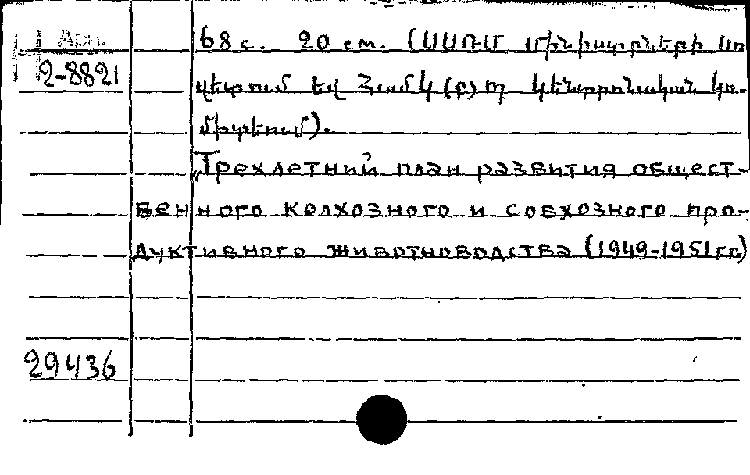 Арм.
2-8821
68 с. 20 см. (ՍՍՌՄ Մինիստրների Սո-
վետում եվ ՀամԿ(բ)Պ Կենտրոնական կո-
միտեում).
„Трехлетний план развития общест-
венного колхозного и совхозного про-
дуктивного животноводства (1949-1951 гг)
29436